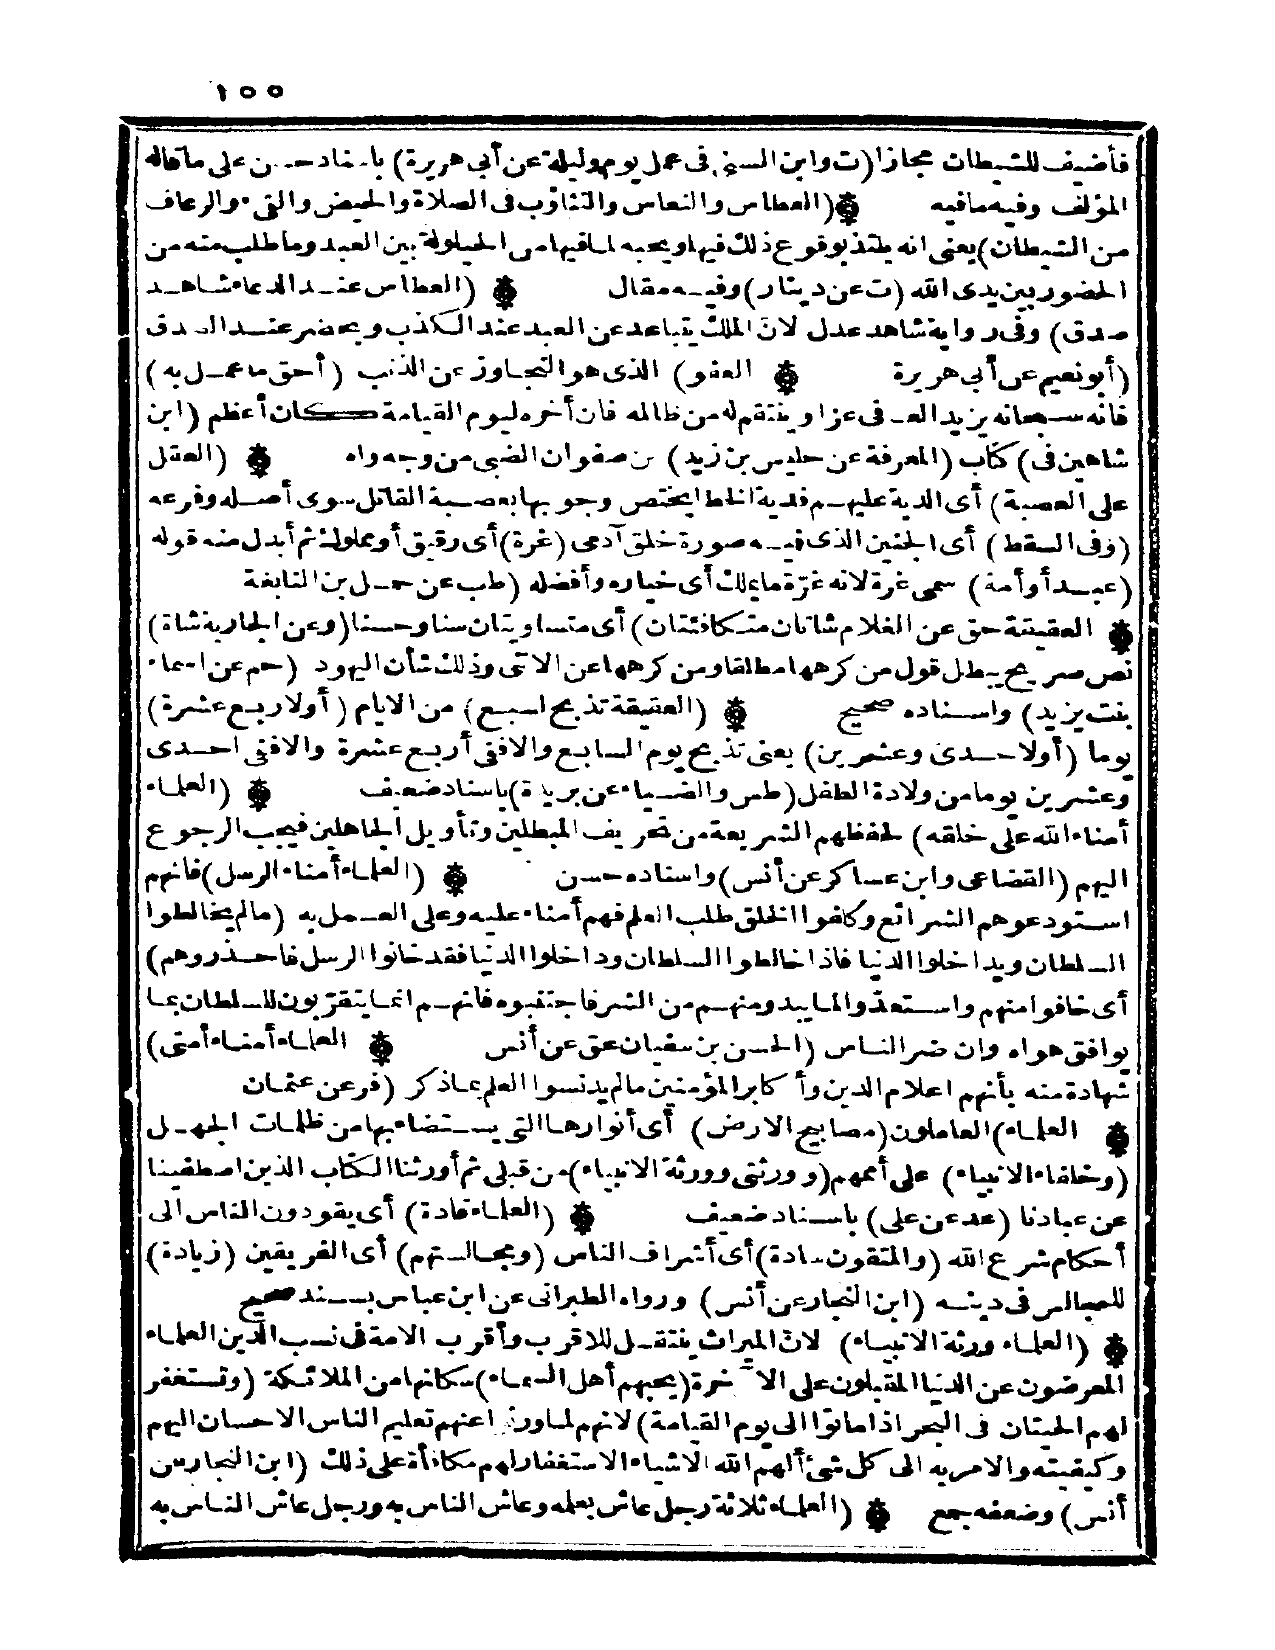 ١٥٥
فأضيف للشيطان مجازا (ت وابن السنى فى عمل يوم وليلة عن أبى هريرة) باسناد حسن على ماقاله
المؤلف وفيه مافيه (العطاس والنعاس والتثاؤب فى الصلاة والحيض والقىء والرعاف
من الشيطان) يعنى انه يلتذ بوقوع ذلك فيها ويحبه لما فيها من الحيلولة بين العبد وماطلب منه من
الحضور بين يدى الله (ت عن دينار) وفيه مقال (العطاس عند الدعاء شاهد
صدق) وفى رواية شاهد عدل لان الملك يتباعد عن العبد عند الكذب ويحضر عند الصدق
(أبو نعيم عن أبى هريرة العفو) الذى هو التجاوز عن الذنب (أحق ما عمل به)
فانه سبحانه يزيد العافى عزا وينتقم له من ظالمه فان أخره ليوم القيامة كان أعظم (ابن
شاهين فى) كتاب (المعرفة عن حليس بن زيد) بن صفوان الضبى من وجه واه (العقل
على العصبة) أى الدية عليهم فدية الخطا يختص وجوبها بعصبة القاتل سوى أصله وفرعه
(وفى السقط) أى الجنين الذى فيه صورة خلق آدمى (غرة) أى رقيق أو مملوك ثم أبدل منه قوله
(عبد أو أمة) سمى غرة لانه غرة مايملك أى خياره وأفضله (طب عن حمل بن النابغة
العقيقة حق عن الغلام شاتان متكافئتان) أى متساويتان سنا وحسنا (وعن الجارية شاة)
نص صريح يبطل قول من كرهها مطلقا ومن كرهها عن الانثى وذلك شأن اليهود (حم عن اسماء
بنت يزيد) واسناده صحيح (العقيقة تذبح لسبع) من الايام (أو لاربع عشرة)
يوما (أو لاحدى وعشرين) يعنى تذبح يوم السابع والا ففى أربع عشرة والا ففى احدى
وعشرين يوما من ولادة الطفل (طس والضياء عن بريدة) باسناد ضعيف (العلماء
أمناء الله على خلقه) لحفظهم الشريعة من تحريف المبطلين وتأويل الجاهلين فيجب الرجوع
اليهم (القضاعى وابن عساكر عن أنس) واسناده حسن (العلماء أمناء الرسل) فانهم
استودعوهم الشرائع وكافوا الخلق طلب العلم فهم أمناء عليه وعلى العمل به (مالم يخالطوا
السلطان ويداخلوا الدنيا فاذا خالطوا السلطان وداخلوا الدنيا فقد خانوا الرسل فاحذروهم)
أى خافوا منهم واستعدوا لما يبدو منهم من الشر فاجتنبوه فانهم انما يتقربون للسلطان بما
يوافق هواه وان ضر الناس (الحسن بن سفيان عق عن أنس العلماء أمناء أمتى)
شهادة منه بأنهم اعلام الدين وأكابر المؤمنين مالم يدنسوا العلم بماذكر (فر عن عثمان
العلماء) العاملون (مصابيح الارض) أى أنوارها التى يستضاء بها من ظلمات الجهل
(وخلفاء الانبياء) على أممهم (وورثتى وورثة الانبياء) من قبلى ثم أورثنا الكتاب الذين اصطفينا
من عبادنا (عد عن على) باسناد ضعيف (العلماء قادة) أى يقودون الناس الى
أحكام شرع الله (والمتقون سادة) أى أشراف الناس (ومجالستهم) أى الفريقين (زيادة)
للمجالس فى دينه (ابن النجار عن أنس) ورواه الطبرانى عن ابن عباس بسند صحيح
(العلماء ورثة الانبياء) لان الميراث ينتقل للاقرب وأقرب الامة فى نسب الدين العلماء
المعرضون عن الدنيا المقبلون على الآخرة (يحبهم أهل السماء) سكانها من الملائكة (وتستغفر
لهم الحيتان فى البحر اذا ماتوا الى يوم القيامة) لانهم لما ورثوا عنهم تعليم الناس الاحسان اليهم
وكيفيته والامر به الى كل شئ ألهم الله الاشياء الاستغفار لهم مكافأة على ذلك (ابن النجار عن
أنس) وضعفه جمع (العلماء ثلاثة رجل عاش بعلمه وعاش الناس به ورجل عاش الناس به